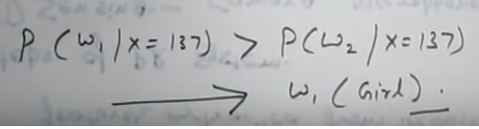 P (ω₁ / x = 137) > P(ω₂ / x = 137)
⟶ ω₁ (Girl).